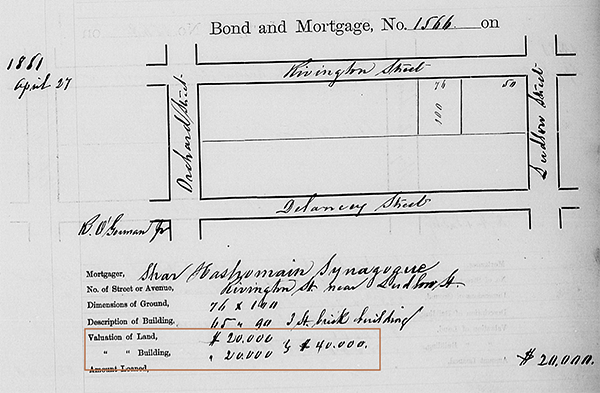 Bond and Mortgage, No. 1566 on
1881
April 27
Rivington Street
Orchard Street
76
100
50
Ludlow Street
Delancey Street
R. O'Gorman Jr
Mortgager, Shar Hashomain Synagogue
No. of Street or Avenue, Rivington St. near Ludlow St.
Dimensions of Ground, 76 x 100
Description of Building, 65 " 90 3 St. brick building
Valuation of Land, $ 20.000
" " Building, " 20.000 } $ 40.000.
Amount Loaned, $ 20,000.